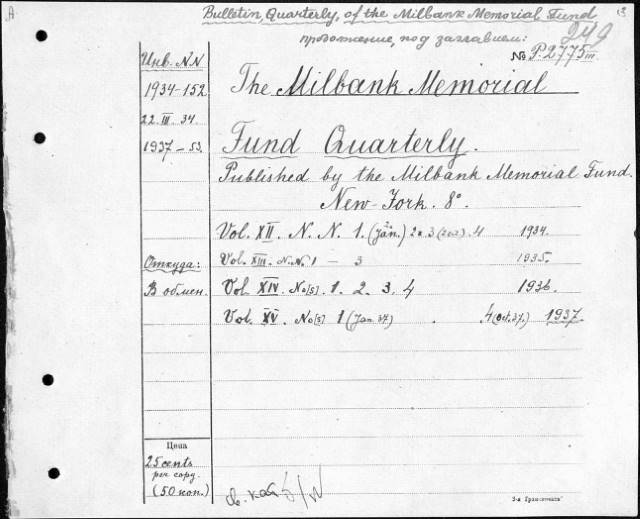 A.
Bulletin, Quarterly, of the Milbank Memorial Fund
продолжение, под заглавием:
249
№ P.2775 III
Инв. NN
1934-152
22.III.34.
1937-53.
The Milbank Memorial
Fund Quarterly.
Published by the Milbank Memorial Fund.
New-York. 8°.
Vol. XII. N. N. 1. (Jan.) 2 3 4 1934.
Откуда:
Vol. XIII. N.N. 1 - 3 1935.
В обмен.
Vol XIV. No[s]. 1. 2. 3. 4 1936.
Vol. XV. No[s] 1 (Jan. 37) . 4 (Oct. 37.) 1937.
Цена
25 cents
per copy.
(50 коп.)